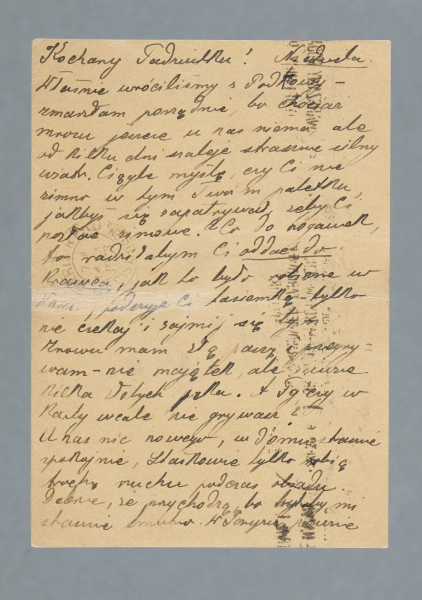 Kochany Tadziulku! Niedziela.
Właśnie wróciliśmy z Podkowy –
zmarzłam porządnie, bo chociaż
mrozu jeszcze u nas niema, ale
od kilku dni szaleje strasznie silny
wiatr. Ciągle myślę, czy Ci nie
zimno w tym Twoim paletku,
jakbyś się zapatrywał, żeby Ci
posłać zimowe. Co do nogawek,
to radziłabym Ci oddać do
krawca, jak to było robione w
, Ci tasiemkę, tylko
nie czekaj i zajmij się tym
Znowu mam złą passę i przegry-
wam – nie majątek, ale zawsze
kilka złotych jest. A Ty czy w
karty wcale nie grywasz?
U nas nic nowego, w domu strasznie
spokojnie, Staśkowie tylko robią
trochę ruchu podczas obiadu.
Dobrze, że przychodzą bo byłoby mi
strasznie smutno. W